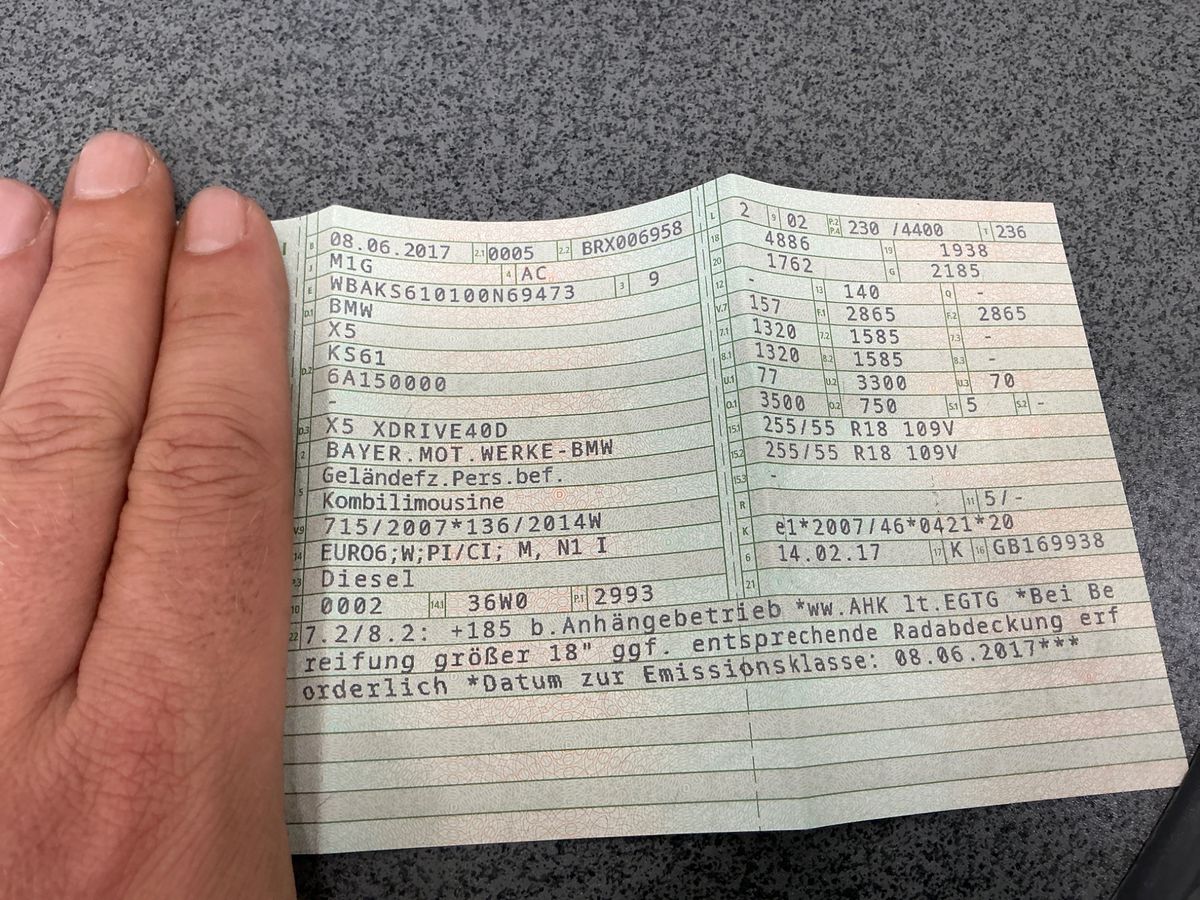 B 08.06.2017 2.1 0005 2.2 BRX006958
J M1G 4 AC
E WBAKS610100N69473 3 9
D.1 BMW
X5
D.2 KS61
6A150000
-
D.3 X5 XDRIVE40D
2 BAYER.MOT.WERKE-BMW
5 Geländefz.Pers.bef.
Kombilimousine
V.9 715/2007*136/2014W
14 EURO6;W;PI/CI; M, N1 I
P.3 Diesel
10 0002 14.1 36W0 P.1 2993
L 2 9 02 P.2 P.4 230 /4400 T 236
18 4886 19 1938
20 1762 G 2185
12 - 13 140 Q -
V.7 157 F.1 2865 F.2 2865
7.1 1320 7.2 1585 7.3 -
8.1 1320 8.2 1585 8.3 -
U.1 77 U.2 3300 U.3 70
O.1 3500 O.2 750 S.1 5 S.2 -
15.1 255/55 R18 109V
15.2 255/55 R18 109V
15.3 -
R 11 5/-
K e1*2007/46*0421*20
6 14.02.17 17 K 16 GB169938
21
22 7.2/8.2: +185 b.Anhängebetrieb *ww.AHK lt.EGTG *Bei Be
reifung größer 18" ggf. entsprechende Radabdeckung erf
orderlich *Datum zur Emissionsklasse: 08.06.2017***